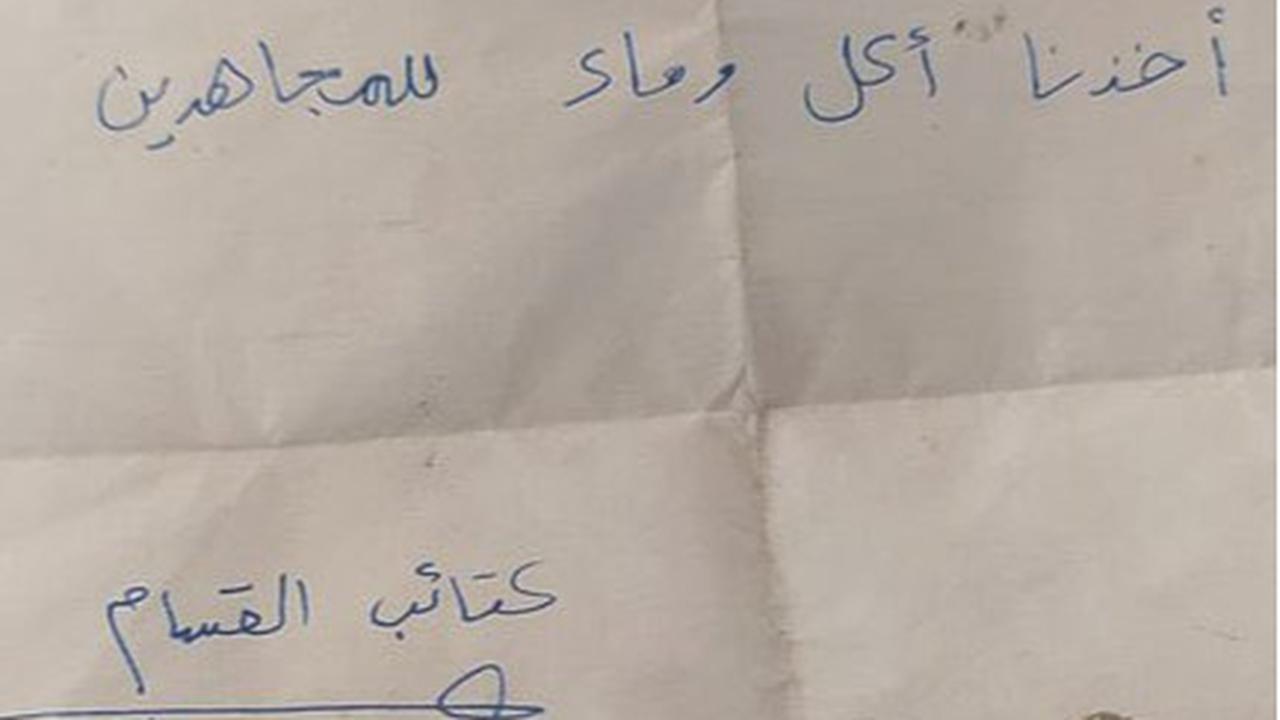 أخذنا أكل وماء للمجاهدين
كتائب القسام